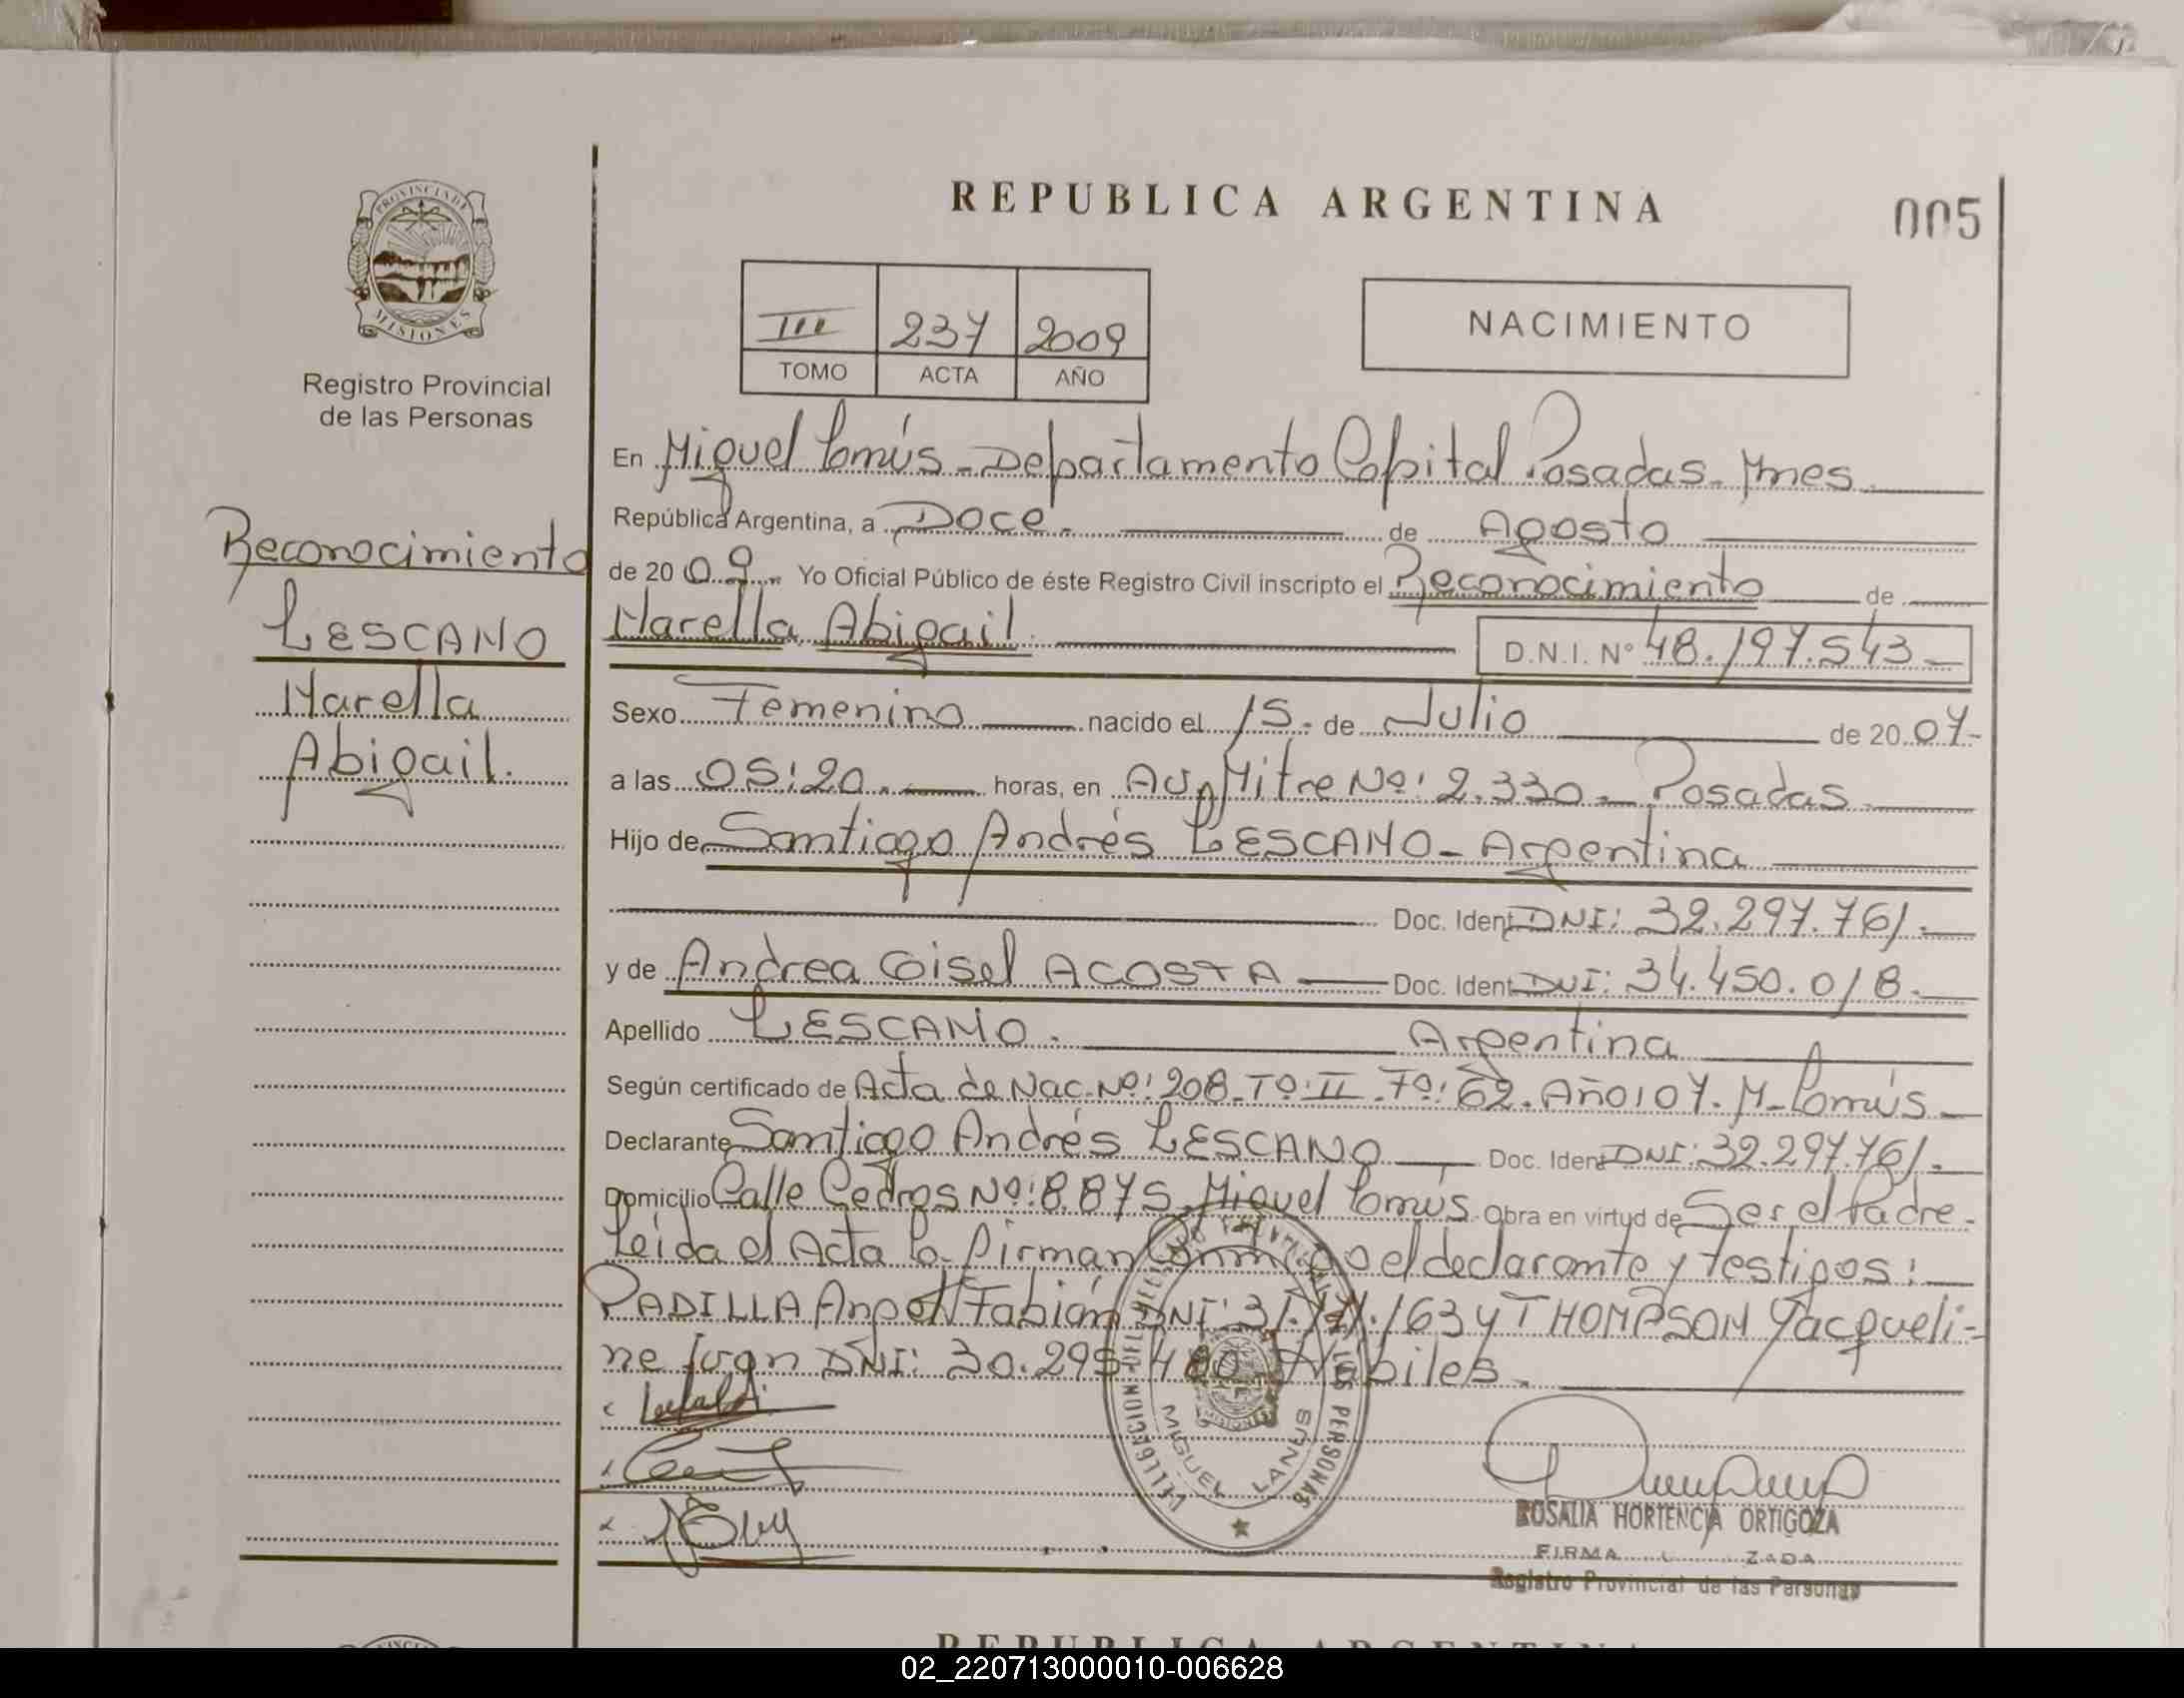 REPUBLICA ARGENTINA
005
PROVINCIA DE
MISIONES
Registro Provincial
de las Personas
III 237 2009
TOMO ACTA AÑO
NACIMIENTO
Reconocimiento
LESCANO
Marella
Abigail.
En Miguel Lanús - Departamento Capital Posadas - Mnes
República Argentina, a Doce. de Agosto
de 2009. Yo Oficial Público de éste Registro Civil inscripto el Reconocimiento de
Marella Abigail. D.N.I. Nº 48.197.543-
Sexo Femenino nacido el 15. de Julio de 2007-
a las 05:20. horas, en Av. Mitre Nº: 2.330 - Posadas
Hijo de Santiago Andrés LESCANO - Argentina
Doc. Ident DNI: 32.297.761.
y de Andrea Gisel ACOSTA Doc. Ident DNI: 34.450.018.
Apellido LESCANO. Argentina
Según certificado de Acta de Nac. Nº: 208 - Tº: II - Fº: 62. Año: 07. M - Lanús
Declarante Santiago Andrés LESCANO Doc. Ident DNI: 32.297.761.
Domicilio Calle Cedros Nº: 8.875. Miguel Lanús Obra en virtud de Ser el Padre.
Leida el Acta la firman conmigo el declarante y testigos:
PADILLA Angel Fabián DNI: 31. .163 y THOMPSON Jacqueli-
ne DNI: 30.295. Hábiles.
DELEGACION DEL REGISTRO PROVINCIAL DE LAS PERSONAS
MIGUEL LANUS
ROSALIA HORTENCIA ORTIGOZA
FIRMA ZADA
Registro Provincial de las Personas
REPUBLICA ARGENTINA
02_220713000010-006628